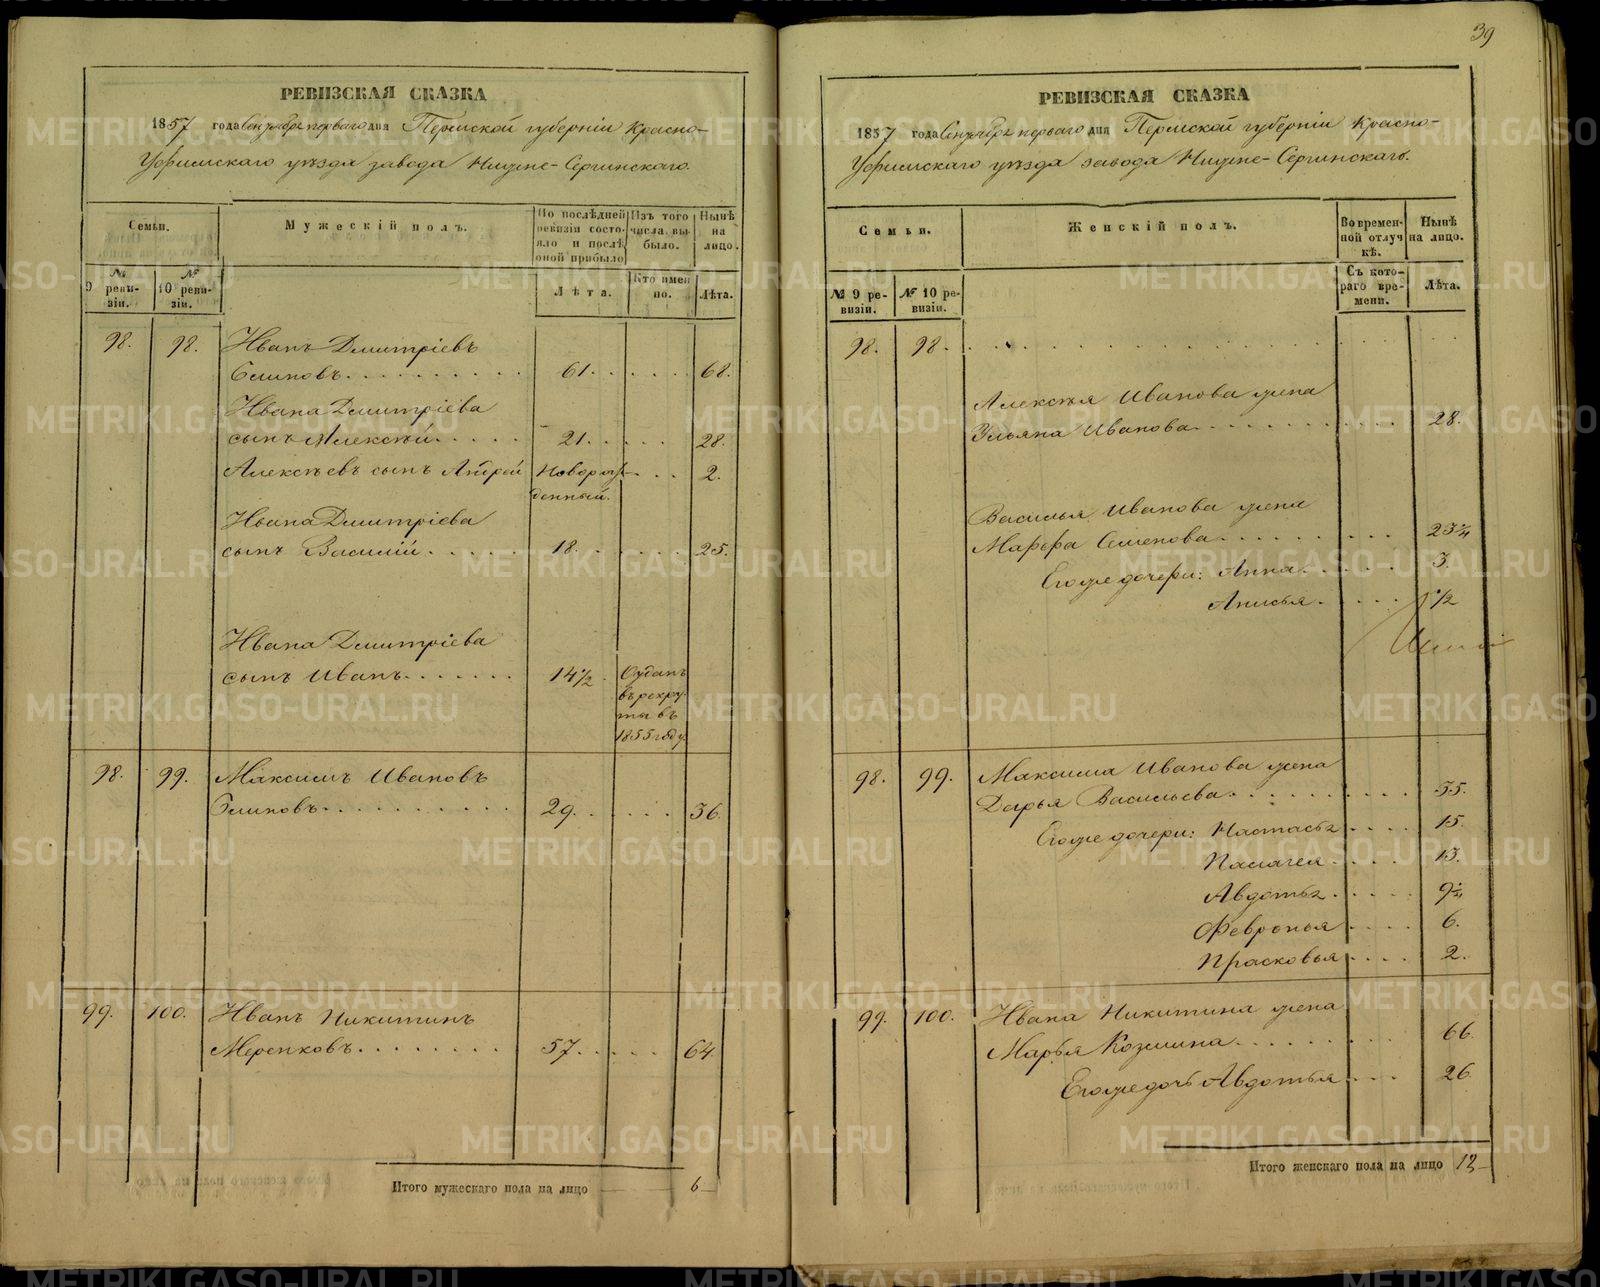 39
РЕВИЗСКАЯ СКАЗКА
1857 года Сентября перваго дня Пермской губерніи Красно-
Уфимскаго уѣзда завода Нижне-Сергинскаго.
Семьи.
Мужескій полъ.
По послѣдней ревизіи состояло и послѣ оной прибыло
Изъ того числа выбыло.
Нынѣ на лицо.
№ 9 ревизіи.
№ 10 ревизіи.
Лѣта.
Кто именно.
Лѣта.
98. 98. Иванъ Дмитріевъ
Блиновъ. 61. 68.
Ивана Дмитріева
сынъ Алексѣй. 21. 28.
Алексѣевъ сынъ Андрей Новорож- 2.
денный.
Ивана Дмитріева
сынъ Василій. 18. 25.
Ивана Дмитріева
сынъ Иванъ. 14½. Отданъ
въ рекру-
ты въ
1855 году.
98. 99. Максимъ Ивановъ
Блиновъ. 29. 36.
99. 100. Иванъ Никитинъ
Меренковъ. 57. 64.
Итого мужескаго пола на лицо 6
РЕВИЗСКАЯ СКАЗКА
1857 года Сентября перваго дня Пермской губерніи Красно-
Уфимскаго уѣзда завода Нижне-Сергинскаго.
Семьи.
Женскій полъ.
Во временной отлучкѣ.
Нынѣ на лицо.
№ 9 ревизіи.
№ 10 ревизіи.
Съ котораго времени.
Лѣта.
98. 98.
Алексѣя Иванова жена
Ульяна Иванова. 28.
Василья Иванова жена
Марфа Семенова. 23¾
Его же дочери: Анна. 3.
Анисья. ½
98. 99. Максима Иванова жена
Дарья Васильева. 35.
Его же дочери: Настасья 15.
Палагея 13.
Авдотья 9¼
Февронья 6.
Прасковья 2.
99. 100. Ивана Никитина жена
Марья Козмина. 66.
Его же дочь Авдотья 26.
Итого женскаго пола на лицо 12
METRIKI.GASO-URAL.RU